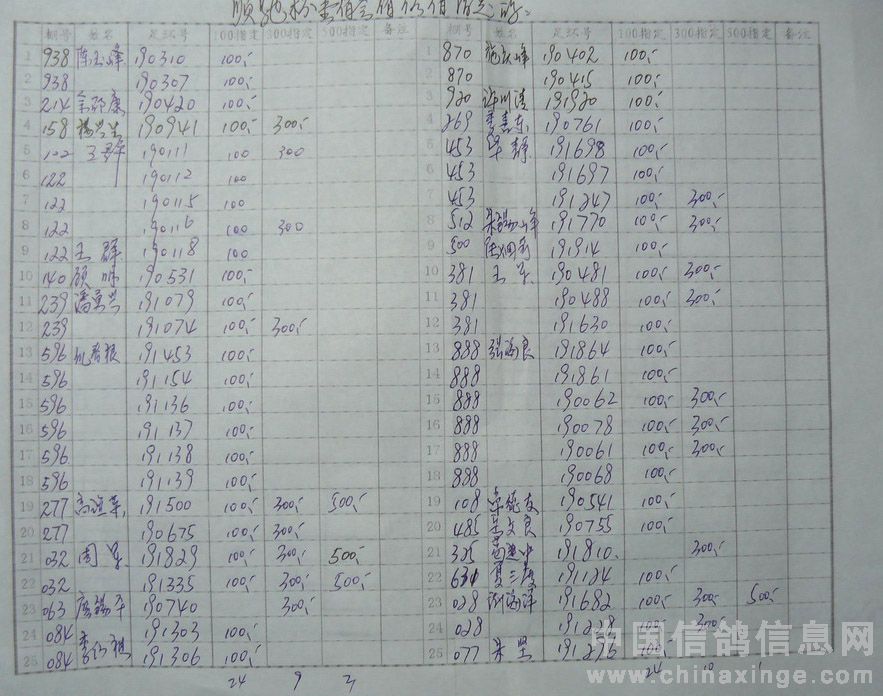 棚号 姓名 足环号 100指定 300指定 500指定 备注
1 938 190310 100,-
2 938 190307 100,-
3 214 190420 100,-
4 158 190941 100,- 300,-
5 122 王群 190111 100 300
6 122 190112 100
7 122 190115 100
8 122 190116 100 300
9 122 王群 190118 100
10 140 190531 100,-
11 239 191079 100,-
12 239 191074 100,- 300,-
13 596 191453 100,-
14 596 191154 100,-
15 596 191136 100,-
16 596 191137 100,-
17 596 191138 100,-
18 596 191139 100,-
19 277 191500 100,- 300,- 500,-
20 277 190675 100,- 300,-
21 032 周军 191829 100,- 300,- 500,-
22 032 191335 100,- 300,- 500,-
23 063 190740 300,-
24 084 191303 100,-
25 084 191306 100,-
24 9 3
棚号 姓名 足环号 100指定 300指定 500指定 备注
1 870 190402 100,-
2 870 190415 100,-
3 920 191920 100,-
4 269 190761 100,-
5 453 191698 100,-
6 453 191697 100,-
7 453 191247 100,- 300,-
8 512 191770 100,- 300,-
9 500 191914 100,-
10 381 王军 190481 100,- 300,-
11 381 190488 100,- 300,-
12 381 191630 100,-
13 888 191864 100,-
14 888 191861 100,-
15 888 190062 100,- 300,-
16 888 190078 100,- 300,-
17 888 190061 100,- 300,-
18 888 190068 100,-
19 108 190541 100,-
20 485 190755 100,-
21 325 191810 300,-
22 191124 100,-
23 028 191682 100,- 300,- 500,-
24 028 191228 100,- 300,-
25 077 朱坚 191296 100,-
24 10 1
中国信鸽信息网
www.chinaxinge.com